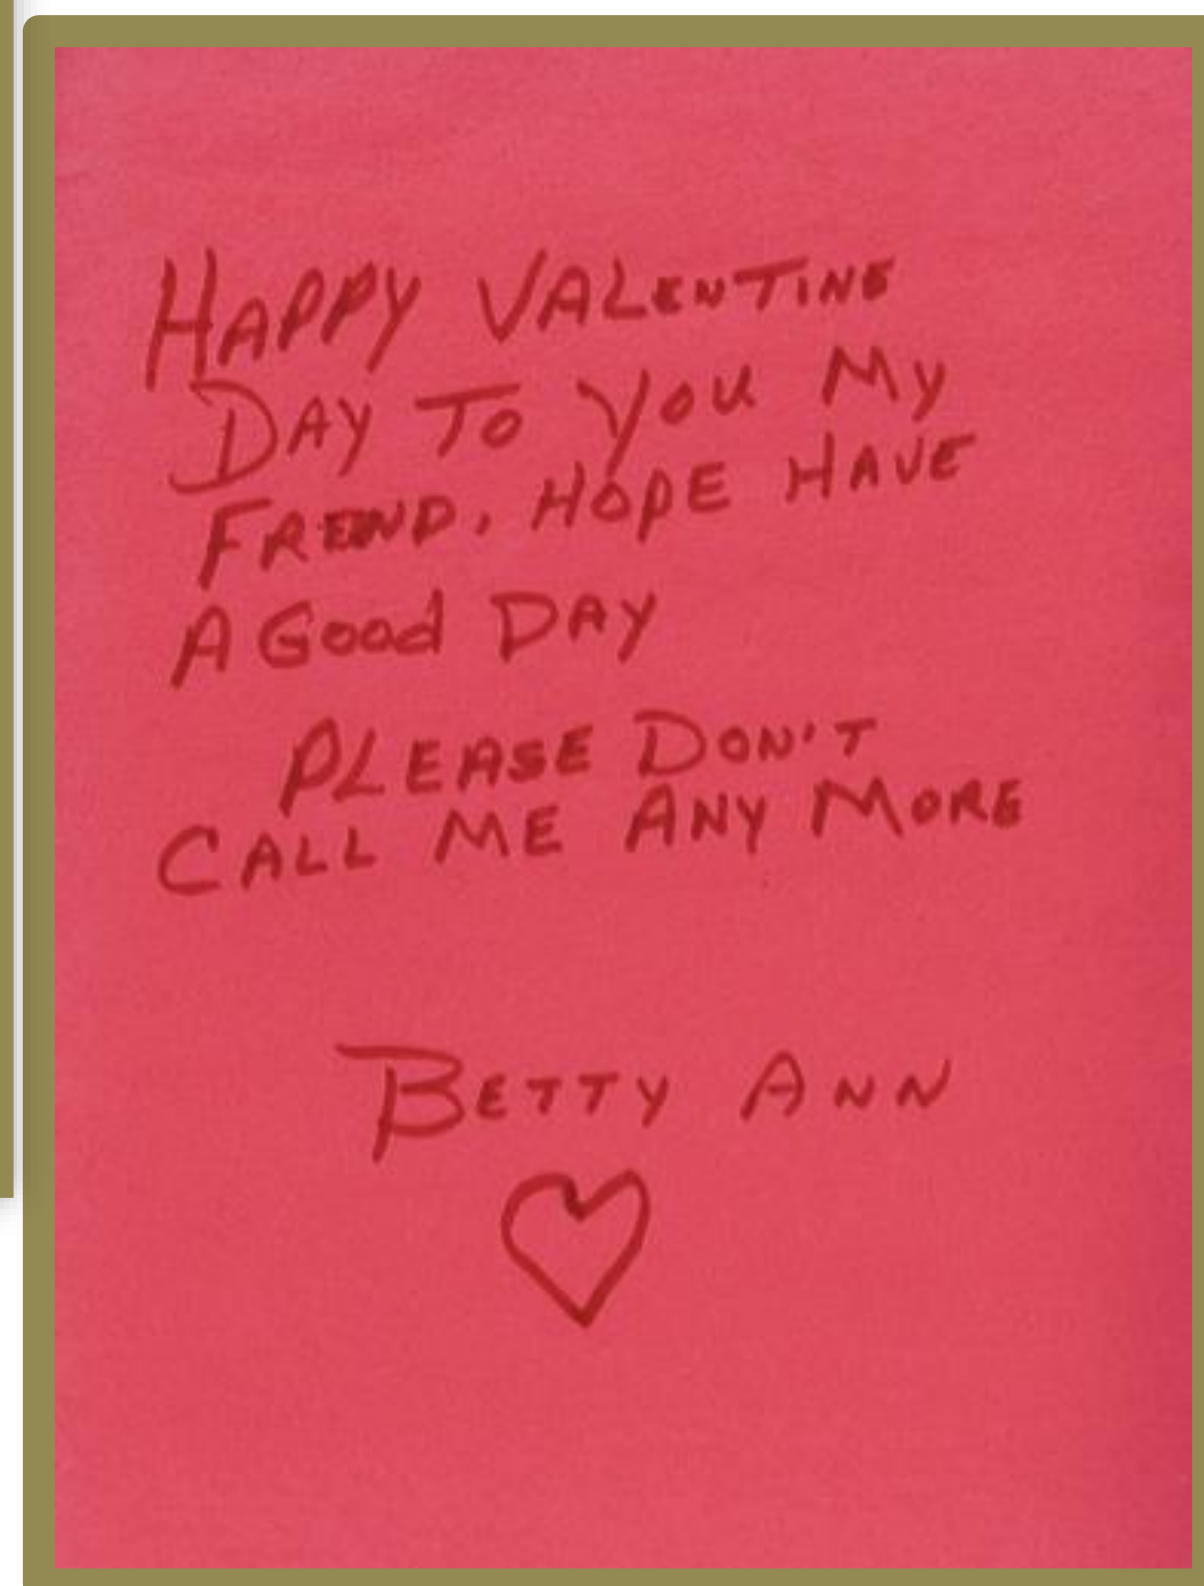 HAPPY VALENTINE
DAY TO YOU MY
FREND, HOPE HAVE
A Good DAY
PLEASE DON'T
CALL ME ANY MORE
BETTY ANN